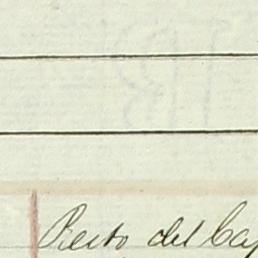 Resto del Cap